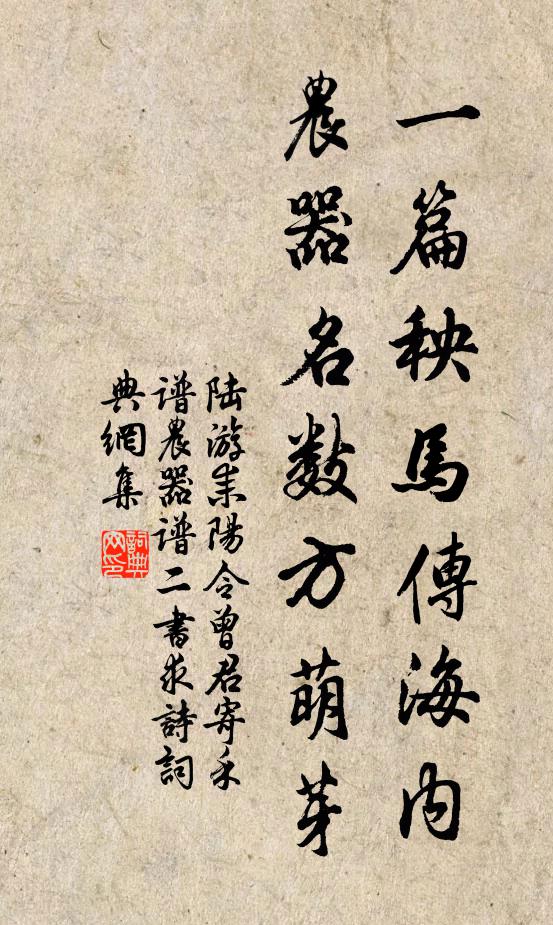 一篇秧馬傳海內
農器名数方萌芽
陆游耒陽令曾君寄禾
谱農器谱二書求詩詞
典網集
詞典網印